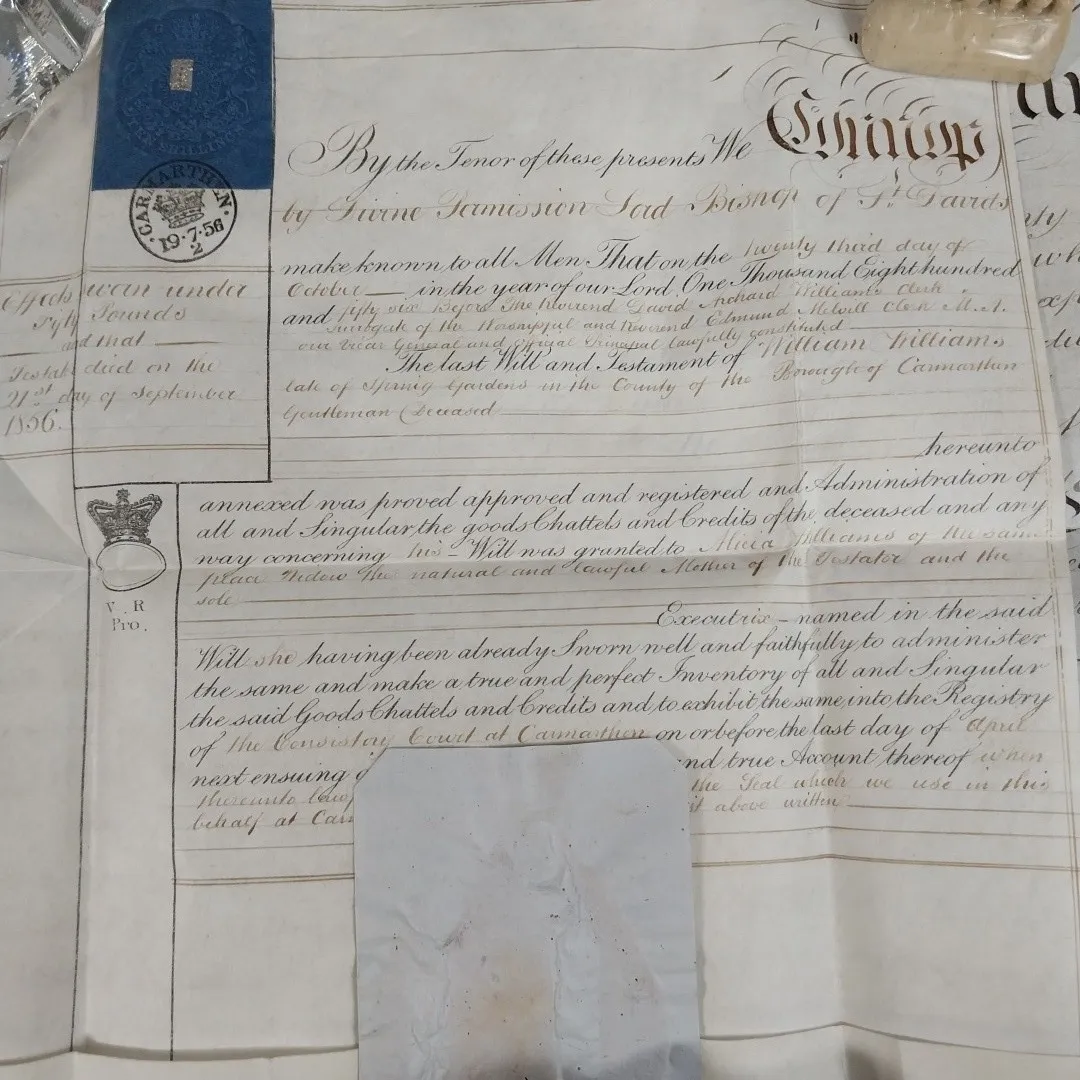 TEN SHILLINGS
CARMARTHEN.
19.7.56
2
Effects sworn under
Fifty Pounds
and that
Testat died on the
21st day of September
1856.
V. R
Pro.
By the Tenor of these presents We Connop
by Divine Permission Lord Bishop of St. Davids
make known to all Men That on the twenty third day of
October in the year of our Lord One Thousand Eight hundred
and fifty six Before The Reverend David Archard Williams Clerk
Surrogate of the Worshipful and Reverend Edmund Melvill Clerk M.A.
our Vicar General and official Principal lawfully constituted
The last Will and Testament of William Williams
late of Spring Gardens in the County of the Borough of Carmarthen
Gentleman Deceased
hereunto
annexed was proved approved and registered and Administration of
all and Singular the goods Chattels and Credits of the deceased and any
way concerning his Will was granted to Alicia Williams of the same
place Widow the natural and lawful Mother of the Testator and the
sole
Executrix named in the said
Will she having been already Sworn well and faithfully to administer
the same and make a true and perfect Inventory of all and Singular
the said Goods Chattels and Credits and to exhibit the same into the Registry
of the Consistory Court at Carmarthen on or before the last day of April
next ensuing nd true Account thereof when
thereunto law the Seal which we use in this
behalf at Car t above written